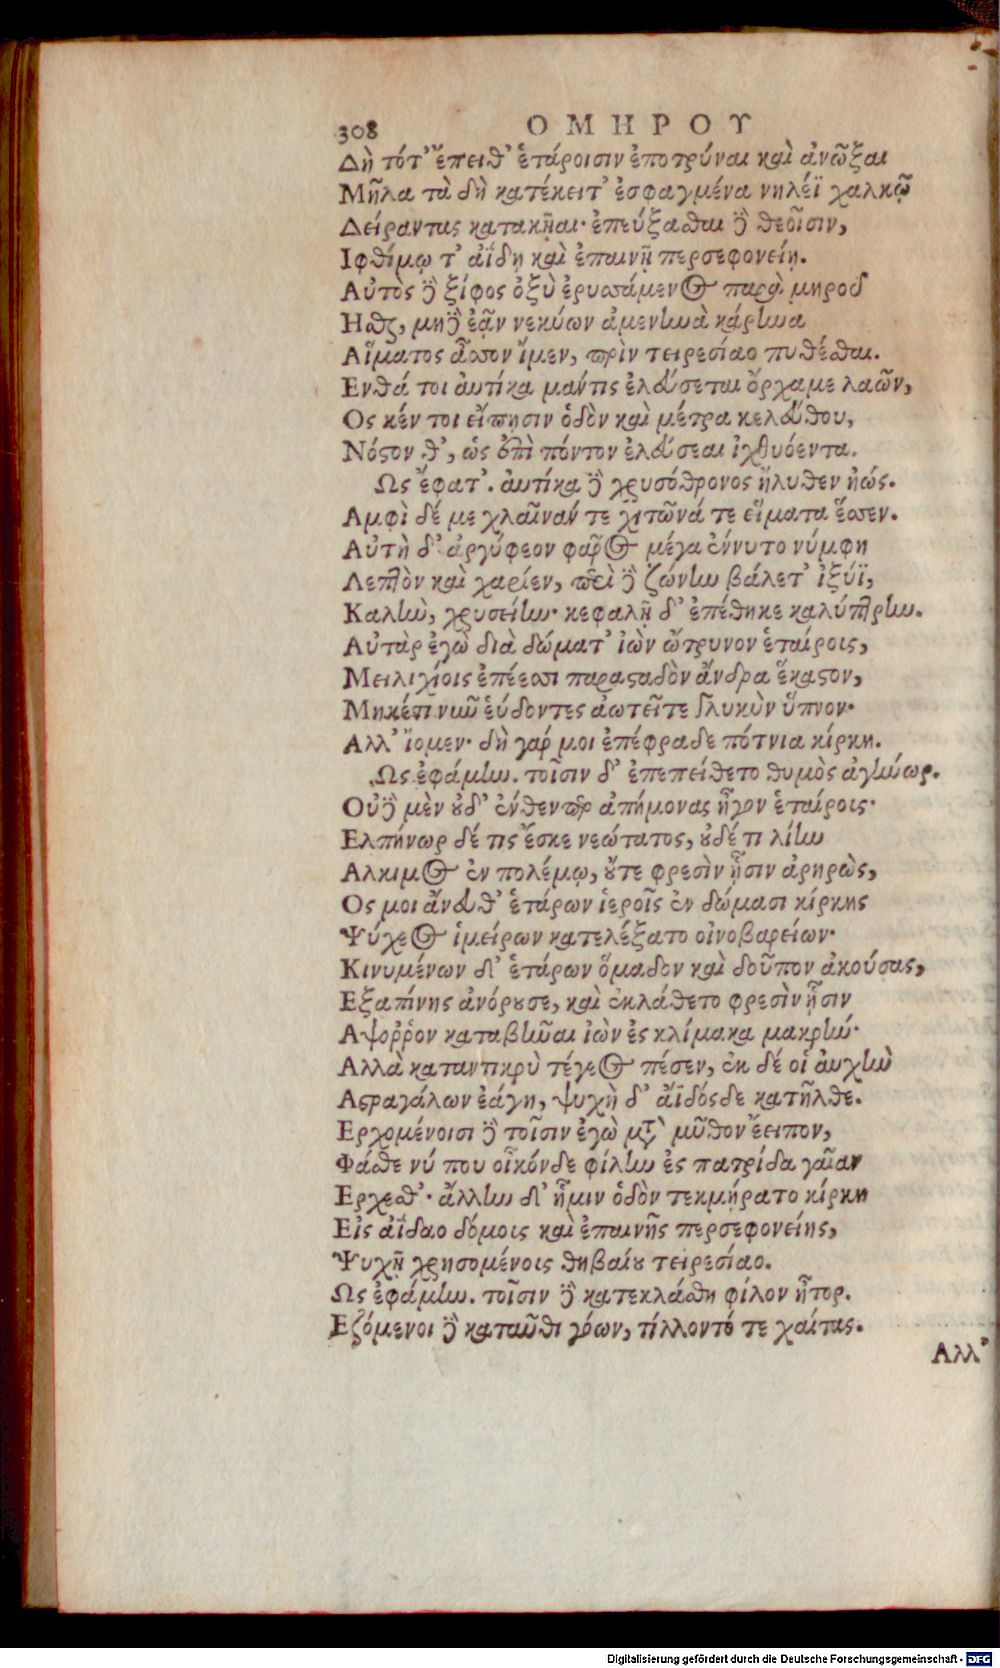 308 ΟΜΗΡΟΥ
Δὴ τότ' ἔπειθ' ἑτάροισιν ἐποτρύναι καὶ ἀνῶξαι
Μῆλα τὰ δὴ κατέκειτ' ἐσφαγμένα νηλέϊ χαλκῷ
Δείραντας κατακῆαι· ἐπεύξασθαι δὲ θεοῖσιν,
Ιφθίμῳ τ' ἀΐδῃ καὶ ἐπαινῇ περσεφονείῃ.
Αὐτὸς δὲ ξίφος ὀξὺ ἐρυσσάμενος παρὰ μηροῦ
Ησθαι, μηδὲ ἐᾷν νεκύων ἀμενηνὰ κάρηνα
Αἵματος ἆσσον ἴμεν, πρὶν τειρεσίαο πυθέσθαι.
Ενθά τοι αὐτίκα μάντις ἐλεύσεται ὄρχαμε λαῶν,
Ος κέν τοι εἴπῃσιν ὁδὸν καὶ μέτρα κελεύθου,
Νόστον θ', ὡς ἐπὶ πόντον ἐλεύσεαι ἰχθυόεντα.
Ως ἔφατ'. αὐτίκα δὲ χρυσόθρονος ἤλυθεν ἠώς.
Αμφὶ δέ με χλαῖνάν τε χιτῶνά τε εἵματα ἕσσεν.
Αὐτὴ δ' ἀργύφεον φᾶρος μέγα ἕννυτο νύμφη
Λεπτὸν καὶ χαρίεν, περὶ δὲ ζώνην βάλετ' ἰξύϊ,
Καλὴν, χρυσείην· κεφαλῇ δ' ἐπέθηκε καλύπτρην.
Αὐτὰρ ἐγὼ διὰ δώματ' ἰὼν ὤτρυνον ἑταίροις,
Μειλιχίοις ἐπέεσσι παρασταδὸν ἄνδρα ἕκαστον,
Μηκέτι νῦν εὕδοντες ἀωτεῖτε γλυκὺν ὕπνον·
Αλλ' ἴομεν· δὴ γάρ μοι ἐπέφραδε πότνια κίρκη.
Ως ἐφάμην. τοῖσιν δ' ἐπεπείθετο θυμὸς ἀγήνωρ.
Οὐδὲ μὲν οὐδ' ἔνθεν περ ἀπήμονας ἦγον ἑταίροις·
Ελπήνωρ δέ τις ἔσκε νεώτατος, οὐδέ τι λίην
Αλκιμος ἐν πολέμῳ, οὔτε φρεσὶν ᾗσιν ἀρηρὼς,
Ος μοι ἄνευθ' ἑτάρων ἱεροῖς ἐν δώμασι κίρκης
Ψύχεος ἱμείρων κατελέξατο οἰνοβαρείων·
Κινυμένων δ' ἑτάρων ὅμαδον καὶ δοῦπον ἀκούσας,
Εξαπίνης ἀνόρουσε, καὶ ἐκλάθετο φρεσὶν ᾗσιν
Αψοῤῥον καταβῆναι ἰὼν ἐς κλίμακα μακρήν·
Αλλὰ καταντικρὺ τέγεος πέσεν, ἐκ δέ οἱ αὐχὴν
Αστραγάλων ἐάγη, ψυχὴ δ' ἄϊδόςδε κατῆλθε.
Ερχομένοισι δὲ τοῖσιν ἐγὼ μετὰ μῦθον ἔειπον,
Φάσθε νύ που οἶκόνδε φίλην ἐς πατρίδα γαῖαν
Ερχεσθ'· ἄλλην δ' ἧμιν ὁδὸν τεκμήρατο κίρκη
Εἰς ἀΐδαο δόμοις καὶ ἐπαινῆς περσεφονείης,
Ψυχῇ χρησομένοις θηβαίου τειρεσίαο.
Ως ἐφάμην. τοῖσιν δὲ κατεκλάσθη φίλον ἦτορ.
Εζόμενοι δὲ καταῦθι γόων, τίλλοντό τε χαίτας.
Αλλ'
Digitalisierung gefördert durch die Deutsche Forschungsgemeinschaft - DFG